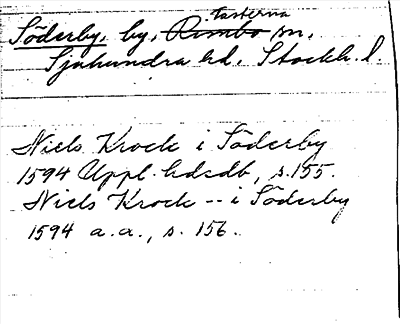 tasterna
Söderby, by, Rimbo sn,
Sjuhundra hd, Stockh. l.
Niels Krock i Söderby
1594 Uppl. hdsdb, s. 155.
Niels Krock -- i Söderby
1594 a.a., s. 156.